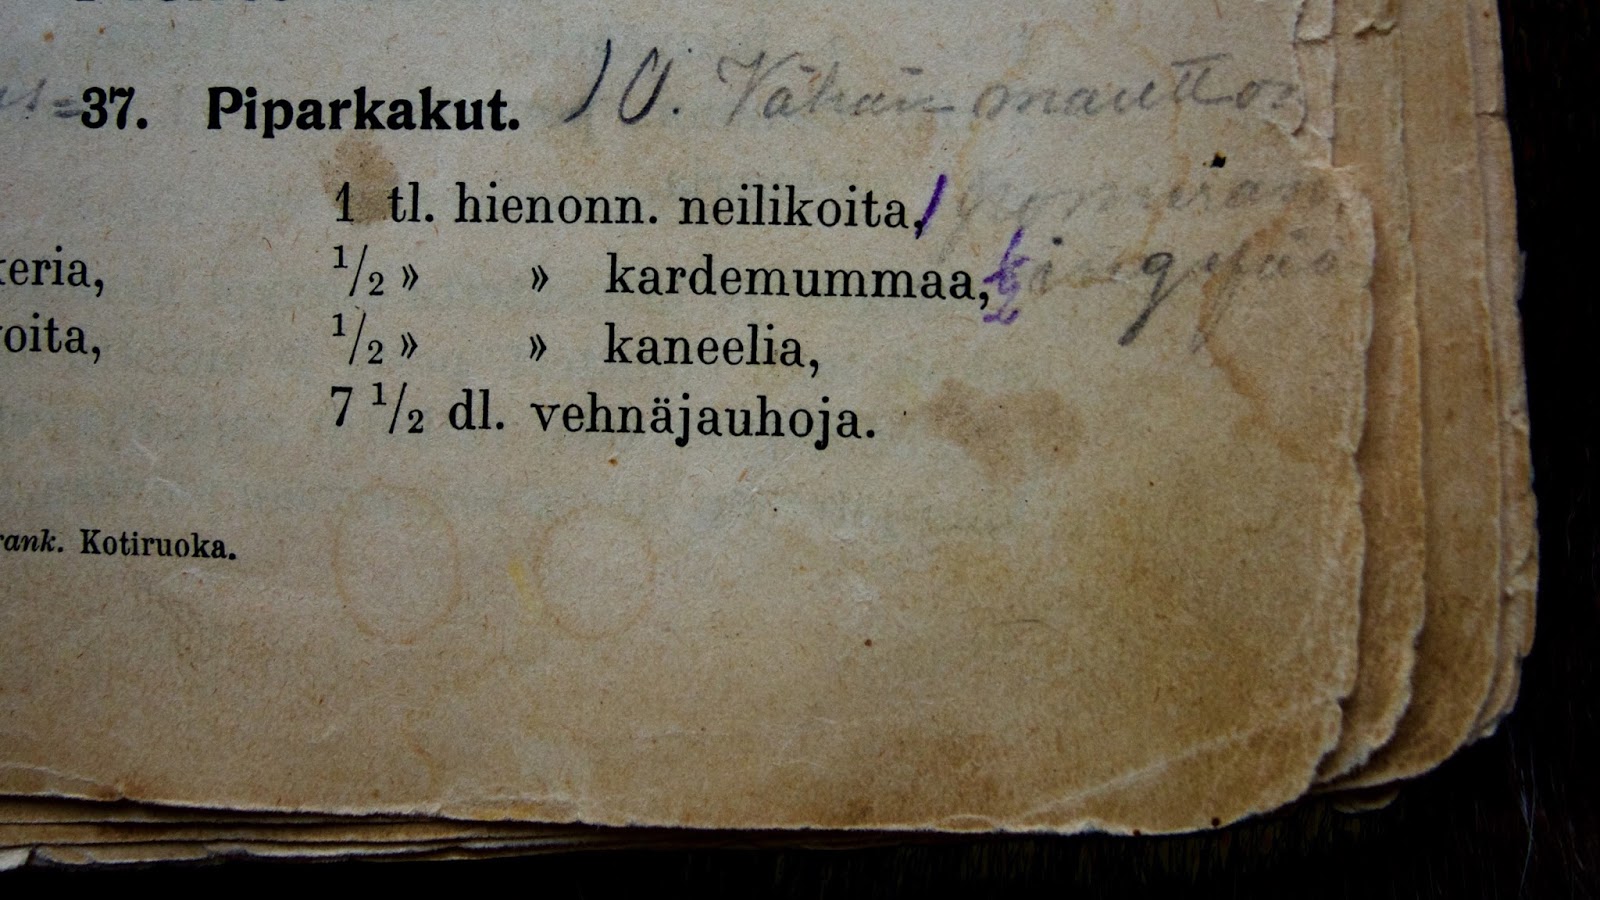 37. Piparkakut. 10. Vähän mautto
1 tl. hienonn. neilikoita,
keria, 1/2 » » kardemummaa, 1/2
voita, 1/2 » » kaneelia,
7 1/2 dl. vehnäjauhoja.
rank. Kotiruoka.